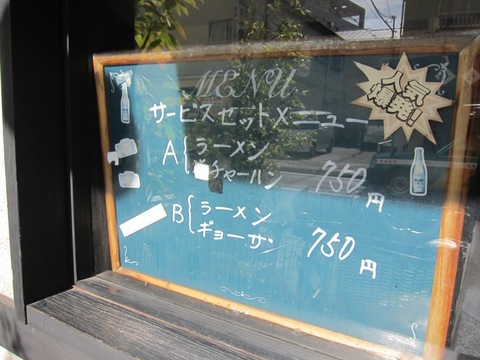 MENU
人気
爆発!!
サービスセットメニュー
A{ラーメン
チャールン 750円
B{ラーメン
ギョーザ 750円